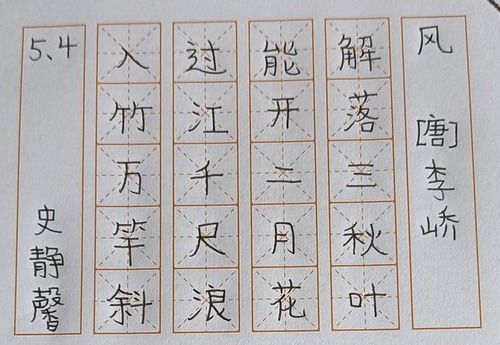 风 [唐]李峤
解落三秋叶
能开二月花
过江千尺浪
入竹万竿斜
5.4 史静馨